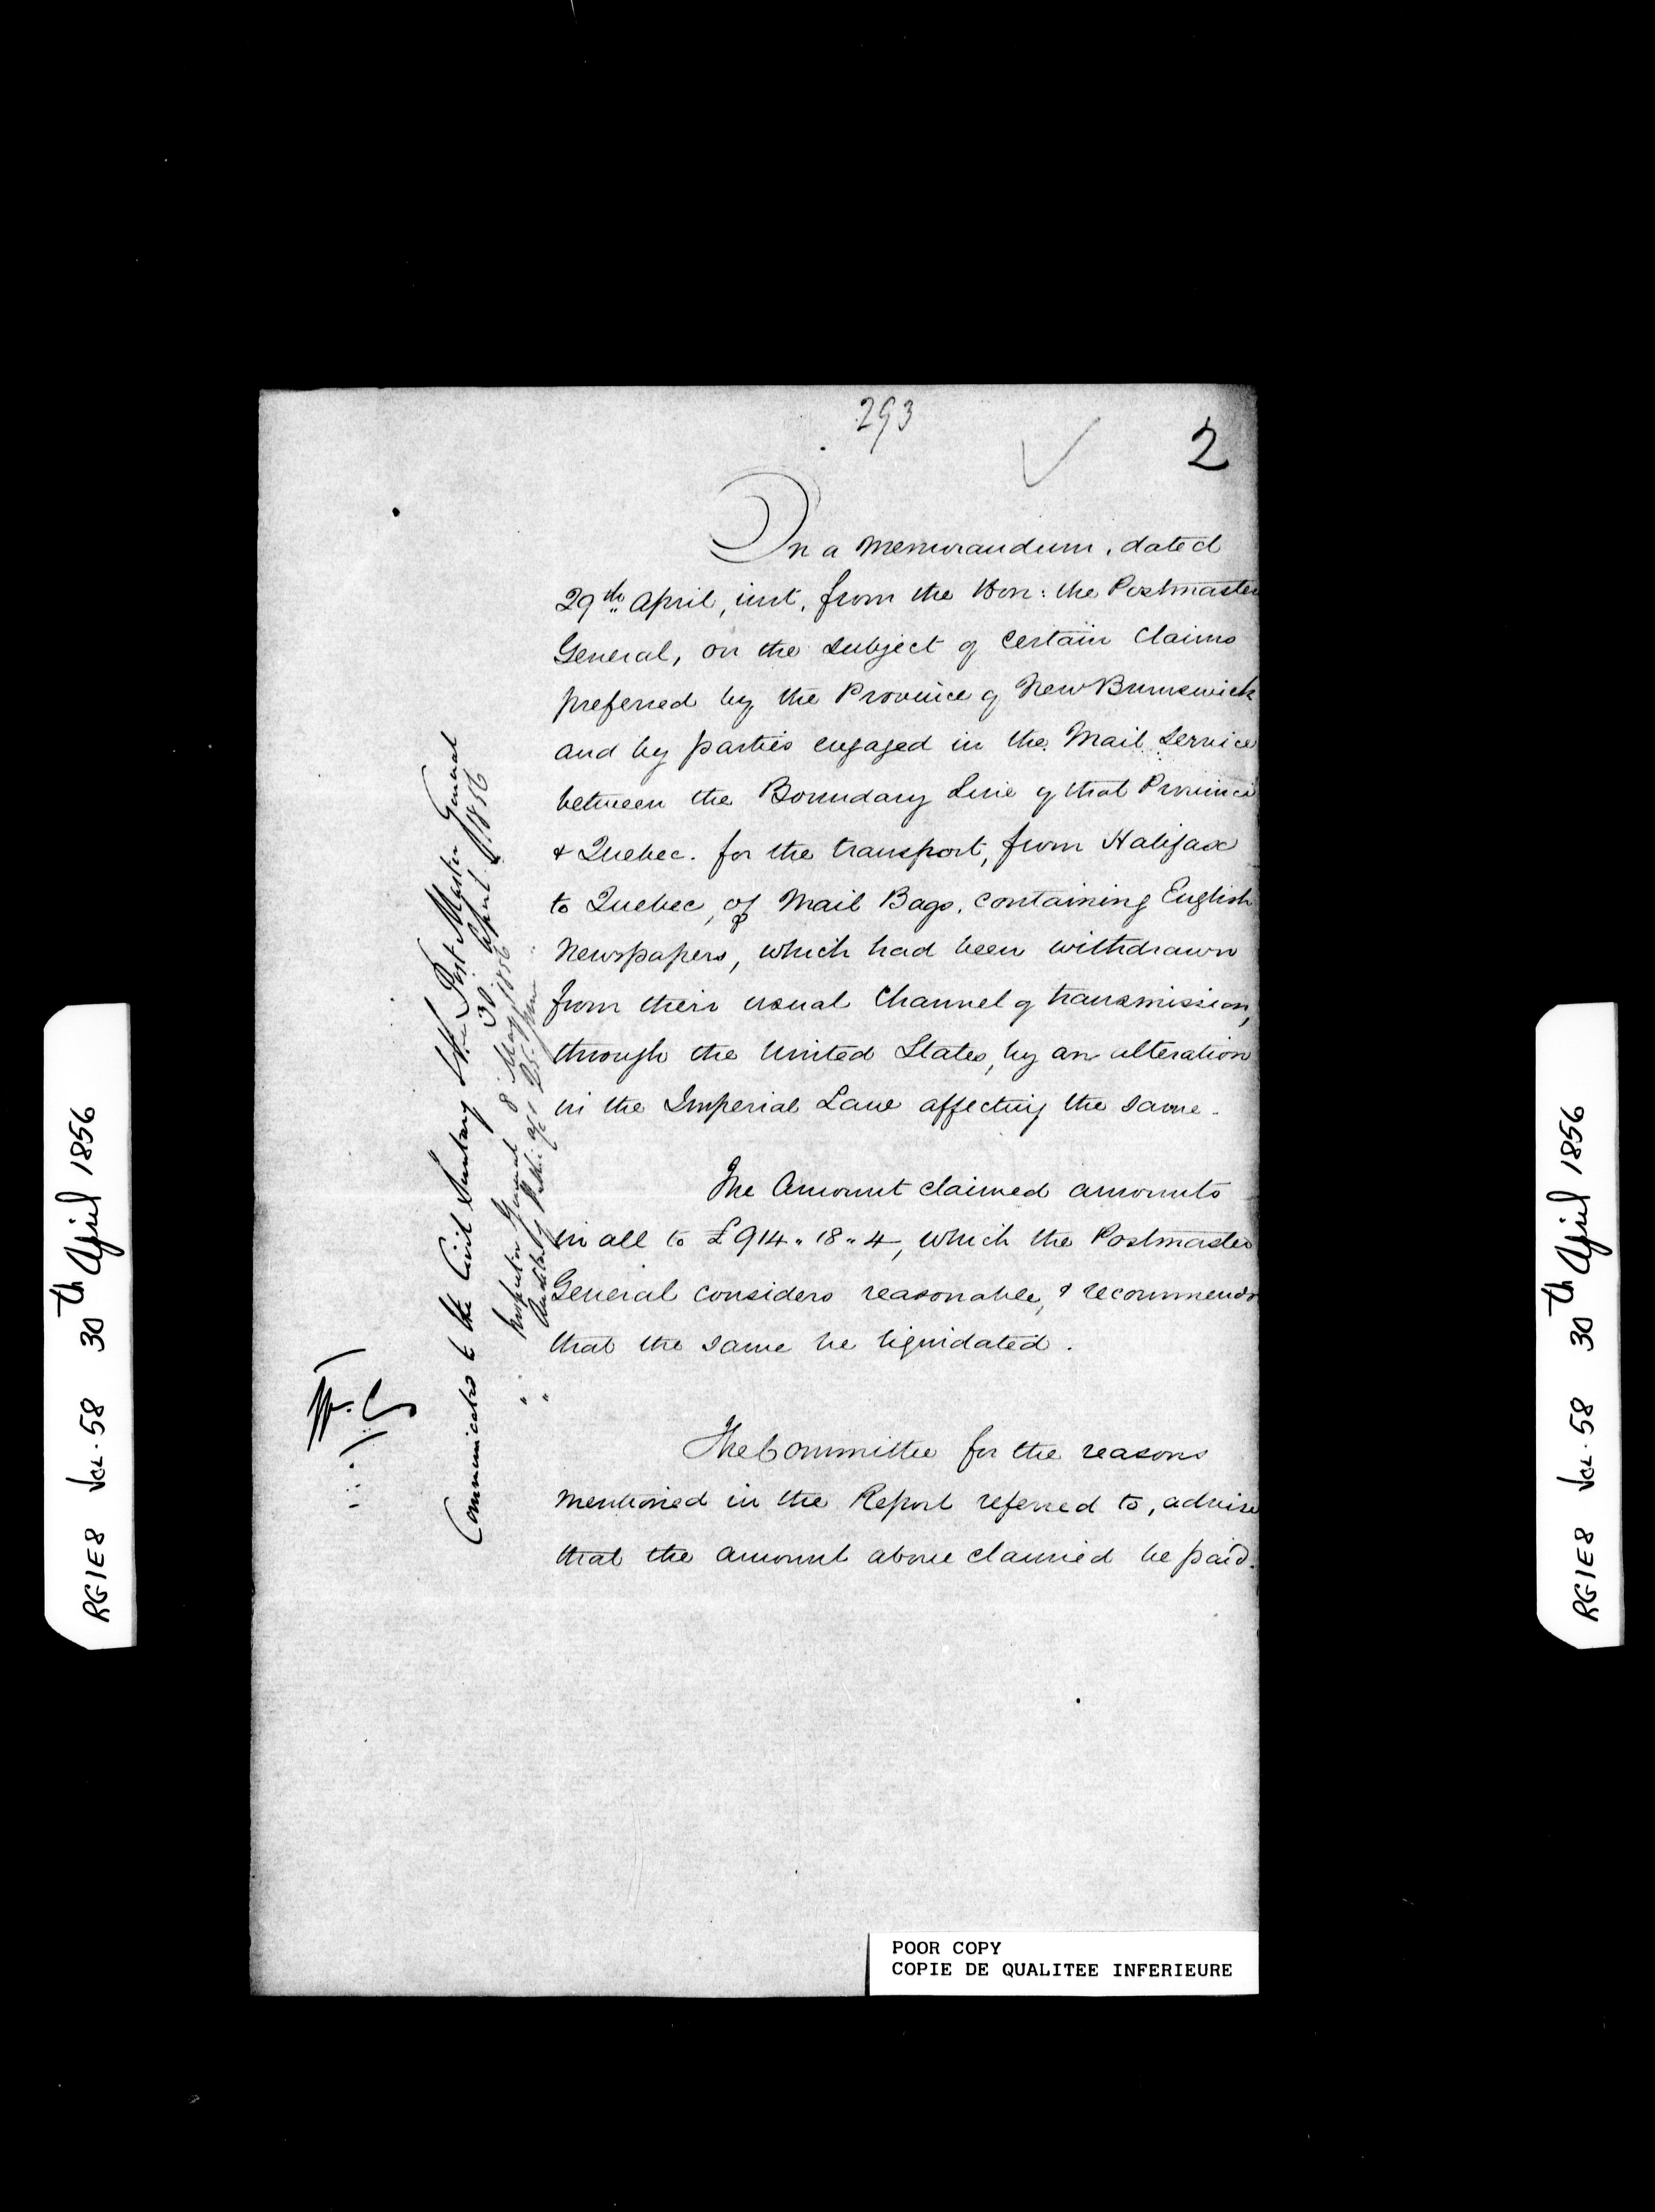 293
2
On a Memorandum, dated
29th April, inst, from the Hon: the Postmaster
General, on the subject of certain Claims
preferred by the Province of New Brunswick
and by parties engaged in the Mail Service
between the Boundary Line of that Province
& Quebec. for the transport, from Halifax
to Quebec, of Mail Bags, containing English
Newspapers, which had been withdrawn
from their usual Channel of transmission,
through the United States, by an alteration
in the Imperial Law affecting the same.
The Amount claimed amounts
in all to £914.18.4, which the Postmaster
General considers reasonable, & recommends
that the same be liquidated.
The Committee for the reasons
mentioned in the Report referred to, advise
that the amount above claimed be paid.
Communicated to the Civil Secretary & the Post Master General
30 April 1856
" Inspector General 8 May 1856
"
RG1E8 Vol. 58 30th April 1856
RG1E8 Vol. 58 30th April 1856
POOR COPY
COPIE DE QUALITEE INFERIEURE